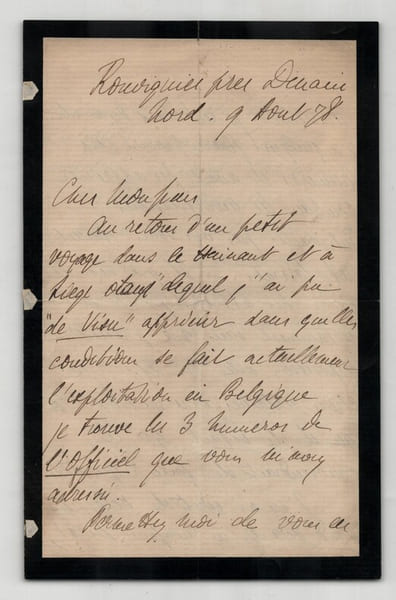 Rouvignies près Denain
Nord. 9 Aout 78.
Cher Monsieur
Au retour d'un petit
voyage dans le Hainaut et à
Liège dans lequel j'ai pu
"de Visu" apprécier dans quelles
conditions se fait actuellement
l'exploitation en Belgique
je trouve les 3 numeros de
l'Officiel que vous m'avez
adressé.
Permettez moi de vous en